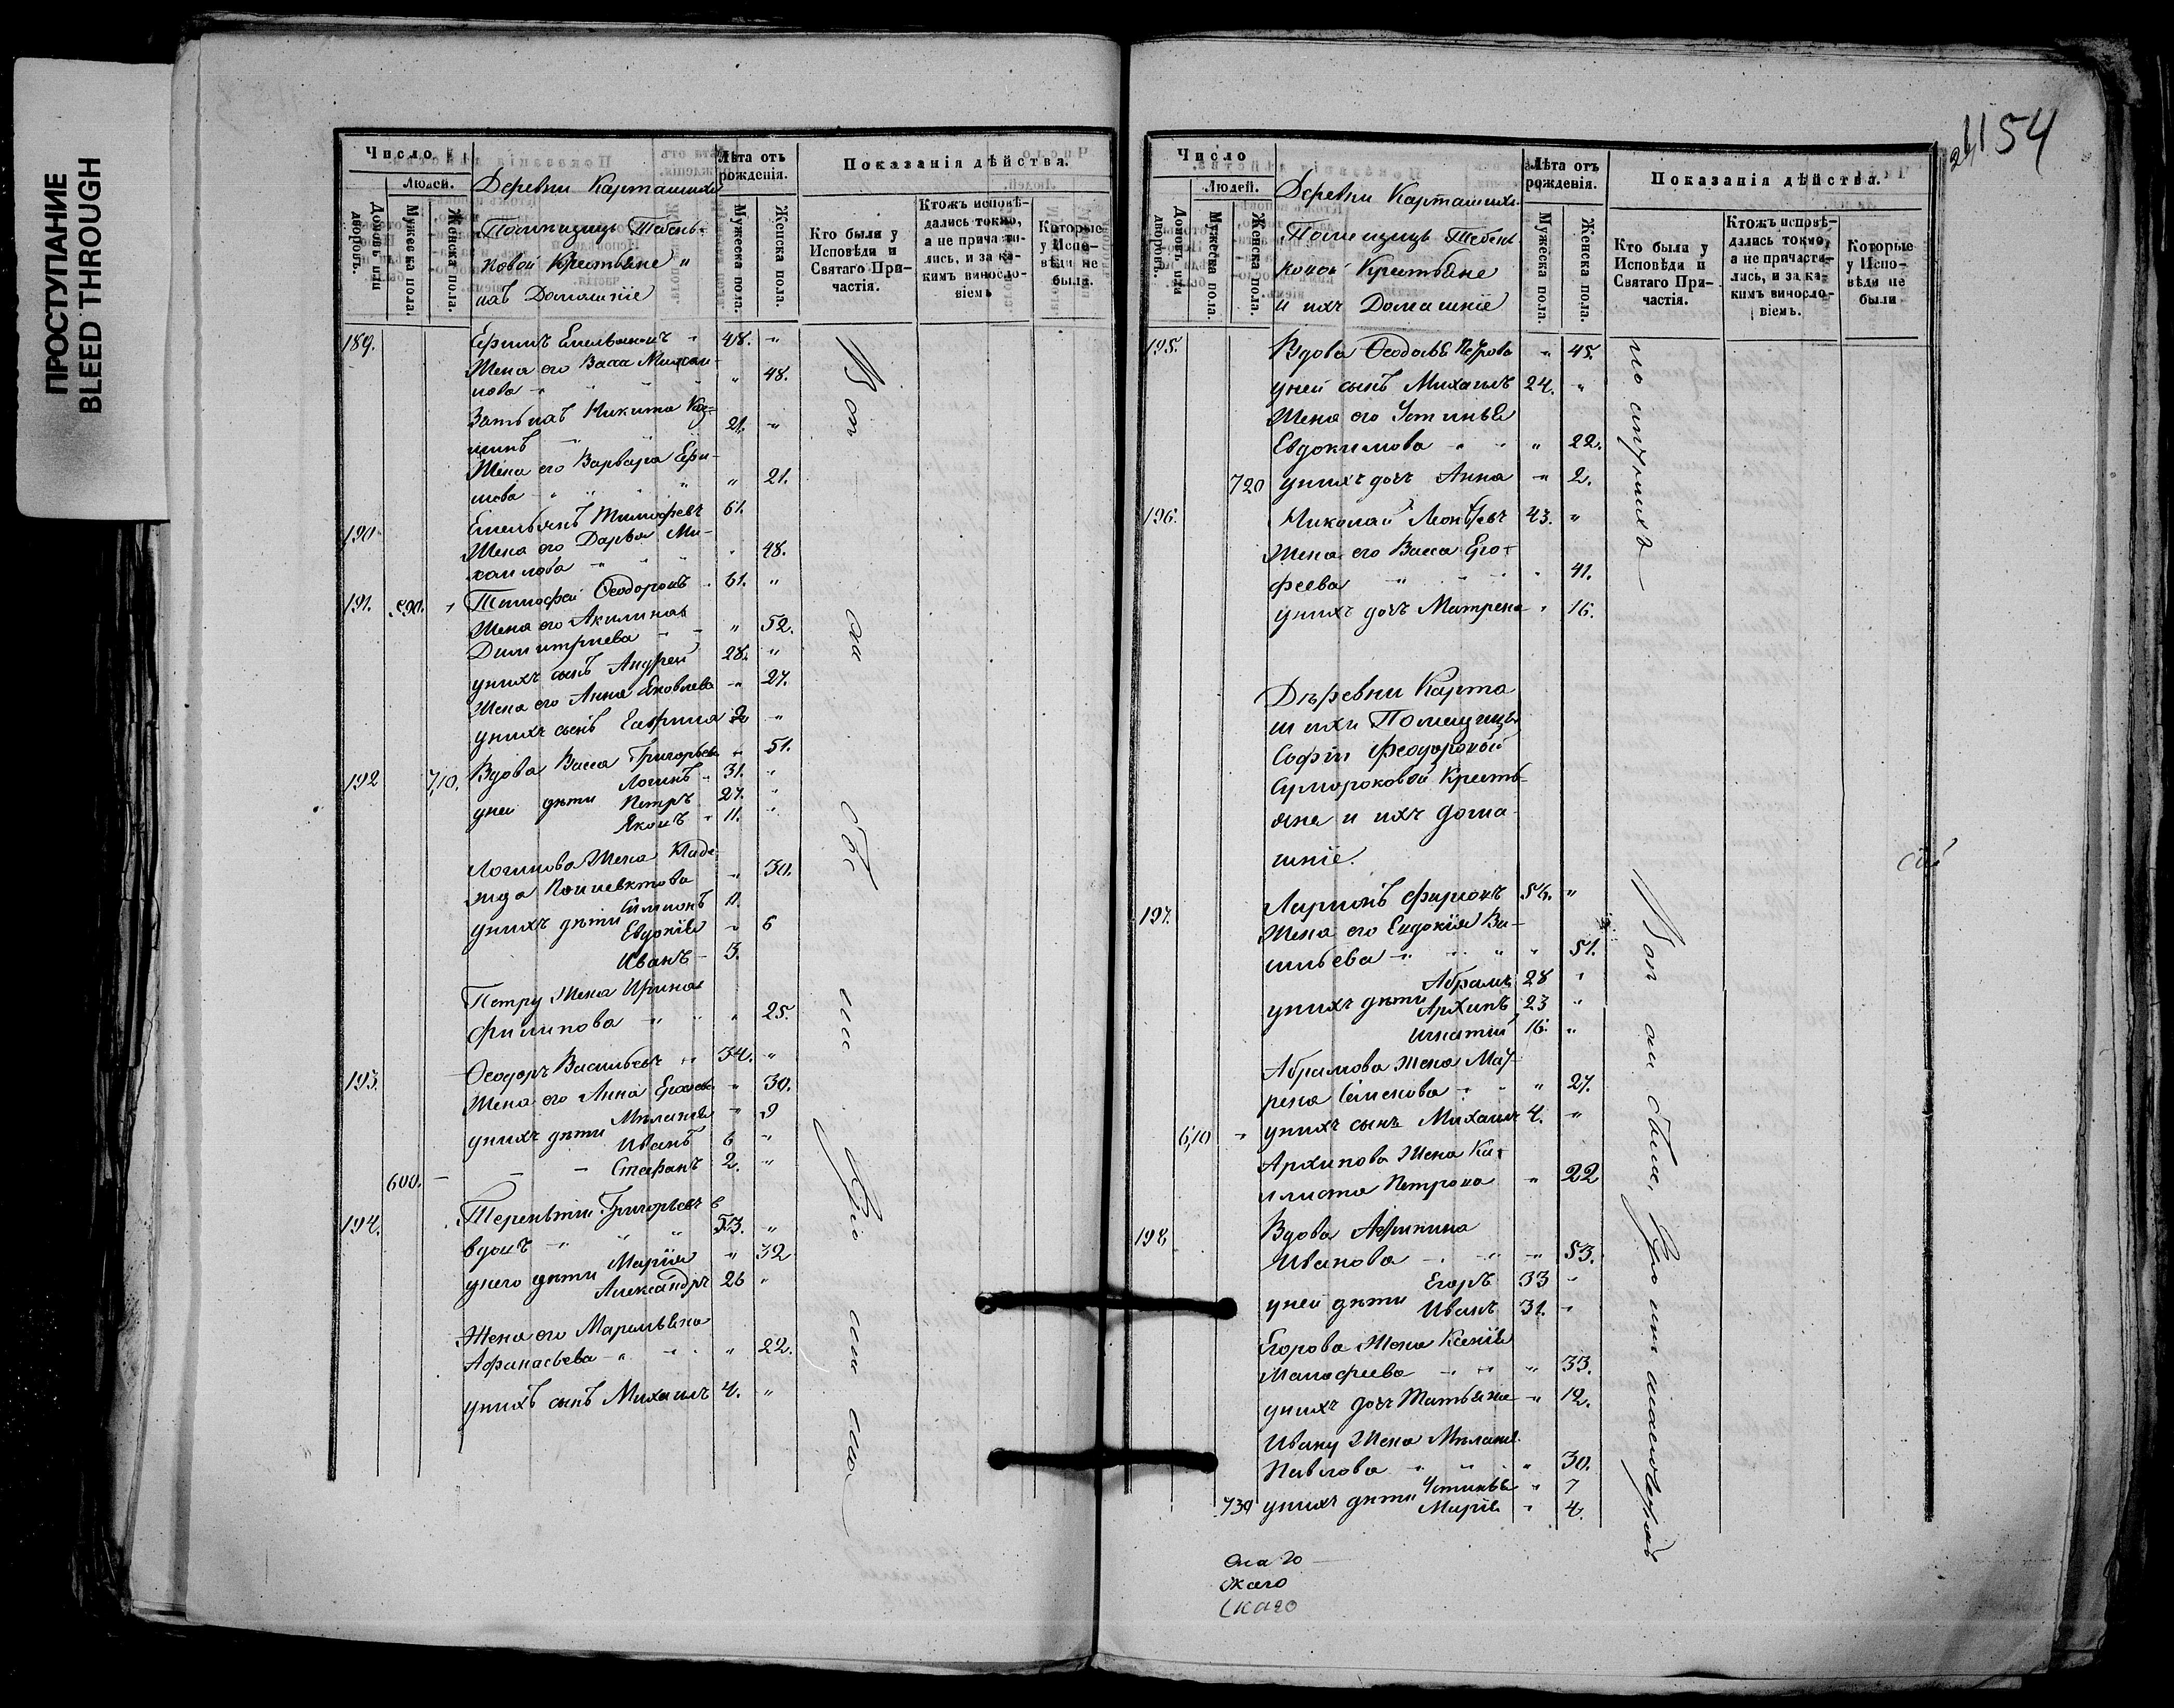 ПРОСТУПАНИЕ
BLEED THROUGH
Число
Людей.
Домовъ или дворовъ.
Мужеска пола.
Женска пола.
Деревни Карташихи
Помѣщицы Тебень-
ковой Крестьяне
Домашніе
Лѣта отъ рожденія.
Мужеска пола.
Женска пола.
Показанія дѣйства.
Кто были у Исповѣди и Святаго Причастія.
Ктожъ исповѣ-
дались токмо,
а не причасти-
лись, и за ка-
кимъ винословіемъ
Которые у Испо-
вѣди не были.
189. Ефимъ Емельяновъ 48. "
Жена его Васса Михаи-
лова " 48.
Зять ихъ Никита
21. "
Жена его Варвара Ефи-
мова " 21.
190. Емельянъ Тимофеевъ 61.
Жена его Дарья Ми-
хайлова " 48.
191. 590. Тимофей Ѳеодоровъ 61. "
Жена его Акилина
Димитриева " 52.
унихъ сынъ Андрей 28. "
Жена его Анна Яковлева " 27.
унихъ сынъ Гаврила 2 "
192 710. Вдова Васса Григорьева " 51.
Логинъ 31. "
уней дѣти Петръ 27. "
Яковъ 11. "
Логинова Жена Наде-
жда " 30.
Симионъ 11.
унихъ дѣти Евдокія " 6
Иванъ 3.
Петру Жена Ирина
Филипова " 25.
193. Ѳеодоръ Васильевъ 34. "
Жена его Анна " 30.
Мѣланія " 9
унихъ дѣти Иванъ 6 "
600. Стефанъ 2. "
194. Терентий Григорьевъ
вдовъ 53. "
Мария " 32
унего дѣти Александръ 26 "
Жена его Маремьяна
Афанасьева " 22.
унихъ сынъ Михаилъ 4. "
1154
Число
Людей.
Домовъ или дворовъ.
Мужеска пола.
Женска пола.
Деревни Карташихи
Помещицы Тебень-
ковой Крестьяне
и ихъ Домашніе
Лѣта отъ рожденія.
Мужеска пола.
Женска пола.
Показанія дѣйства.
Кто были у Исповѣди и Святаго Причастія.
Ктожъ исповѣ-
дались токмо,
а не причасти-
лись, и за ка-
кимъ винословіемъ.
Которые у Испо-
вѣди не были
195. Вдова Ѳеодосья Петрова " 45.
уней сынъ Михаилъ 24. "
Жена его Устинья
Евдокимова " 22.
720 унихъ дочь Анна " 2.
196. Николай Леонтьевъ 43. "
Жена его Васса Еро-
феева " 41.
унихъ дочь Матрена " 16.
Деревни Карта
шихи Помещицы
Софіи Феодоровой
Сумороковой Кресть-
яне и ихъ дома-
шніе.
197. Ларионъ Фирсовъ 54. "
Жена его Евдокія Ва-
сильева " 51.
Абрамъ 28 "
унихъ дѣти Архипъ 23 "
Игнатий 16. "
Абрамова Жена Мат-
рена Семенова " 27.
610 унихъ сынъ Михаилъ 4. "
Архипова Жена Ка-
листа Петрова " 22
198 Вдова
Иванова " 53.
Егоръ 33 "
уней дѣти Иванъ 31. "
Егорова Жена Ксенія
" 33.
унихъ дочь Татьяна " 12.
Ивану Жена Мѣланія
Павлова " 30.
Устинья " 7
730 унихъ дѣти Мария " 4.
скаго
скаго